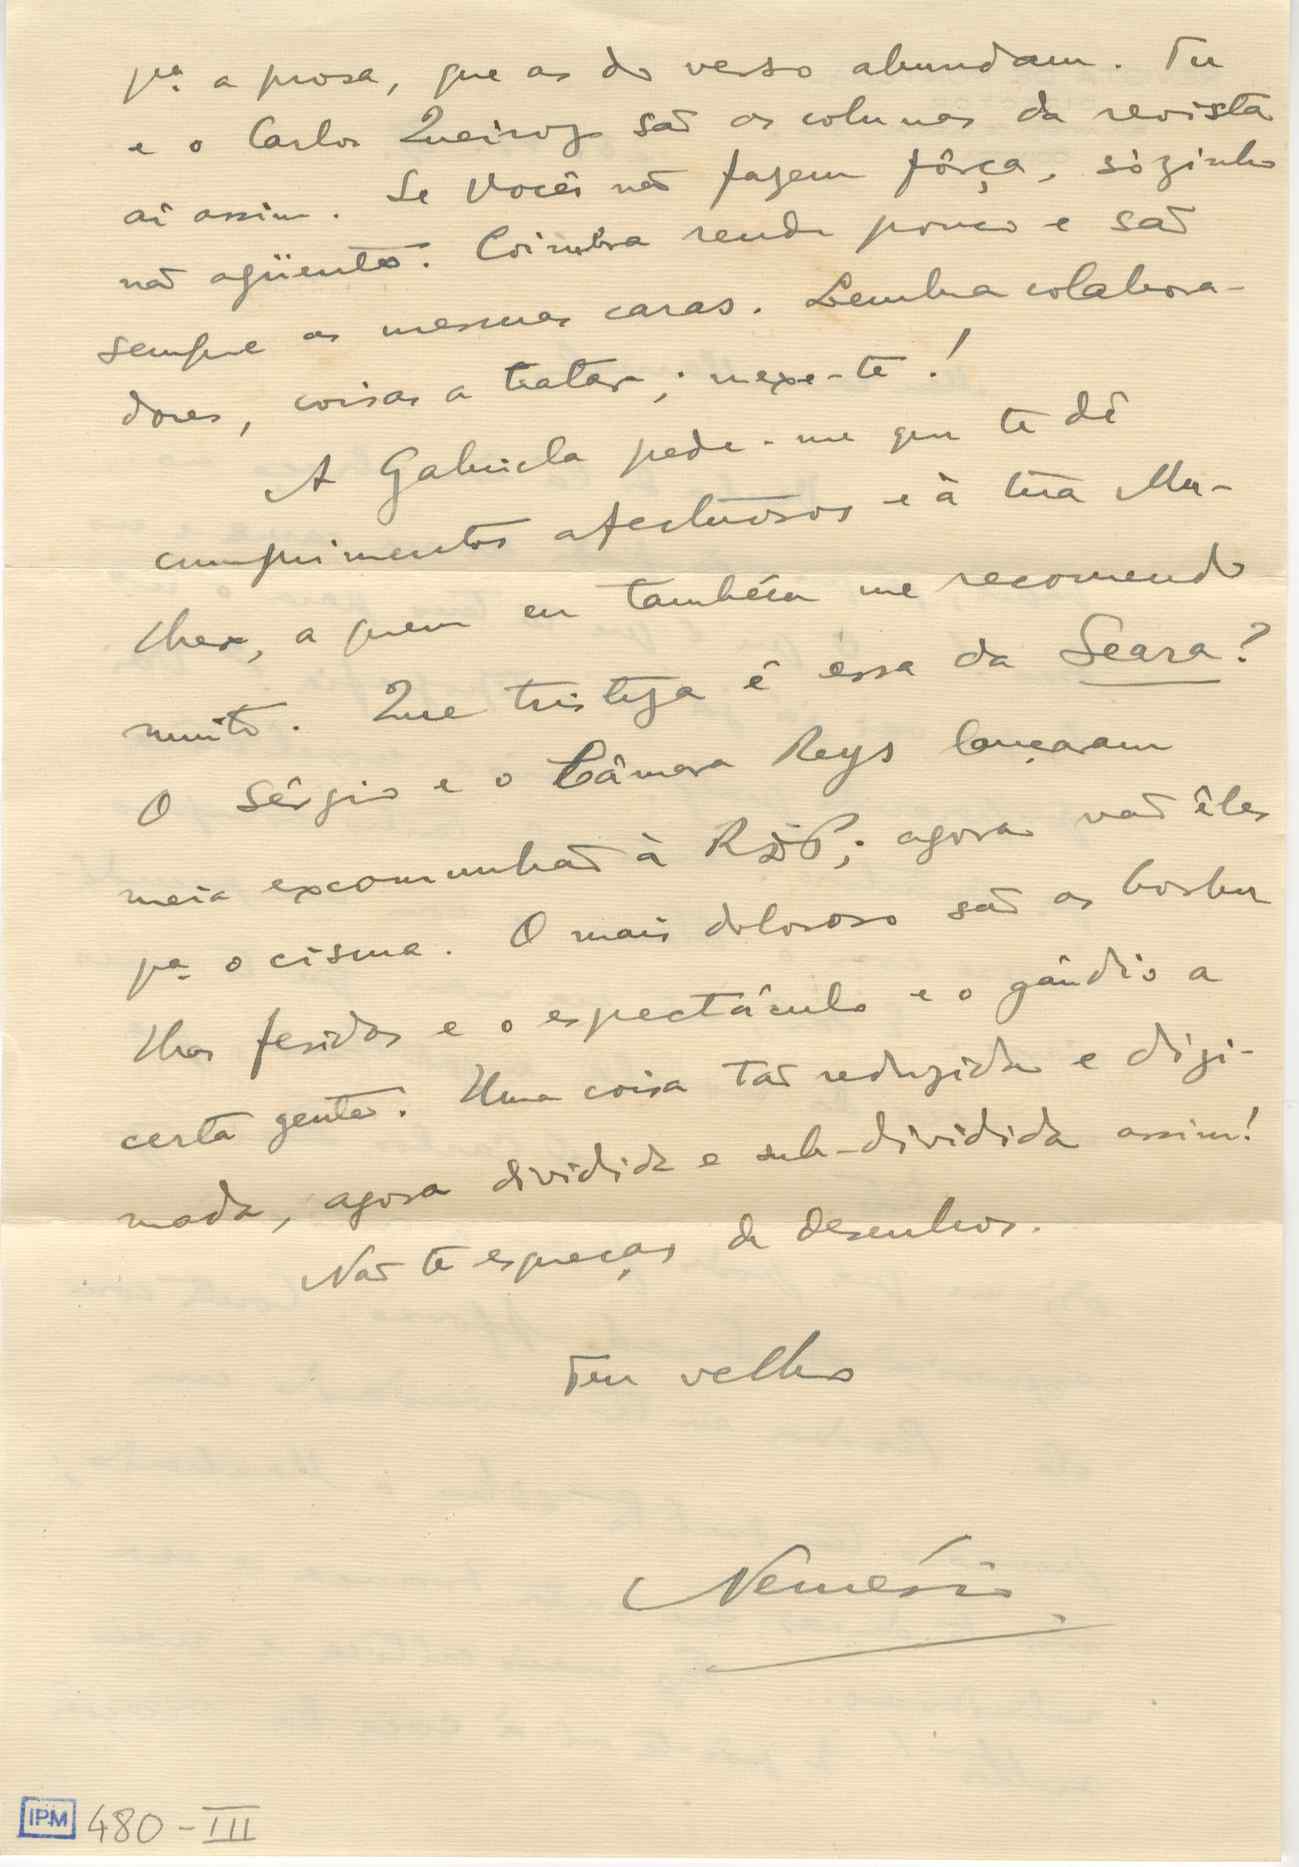 pª. a prosa, que as do verso abundam. Tu
e o Carlos Queiroz são as colunas da revista
aí assim. Se Vocês não fazem fôrça, sòzinho
não agüento. Coimbra rende pouco e são
sempre as mesmas caras. Lembra colabora-
dores, coisas a tratar; mexe-te!
A Gabriela pede-me que te dê
cumprimentos afectuosos e à tua Mu-
lher, a quem eu também me recomendo
muito. Que tristeza é essa da Seara?
O Sérgio e o Câmara Reys lançaram
meia excomunhão à RDP; agora vão êles
pª o cisma. O mais doloroso são os
feridos e o espectáculo e o gáudio a
certa gente. Uma coisa tão reduzida e dizi-
mada, agora dividida e sub-dividida assim!
Não te esqueças de desenhos.
Teu velho
Nemésio
IPM 480-III